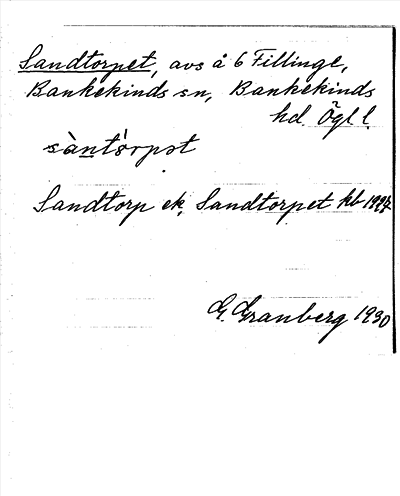 Sandtorpet, avs å 6 Fillinge,
Bankekinds sn, Bankekinds
hd. Ögl l.
sàntòrpət
Sandtorp ek, Sandtorpet kb
G. Granberg 1930